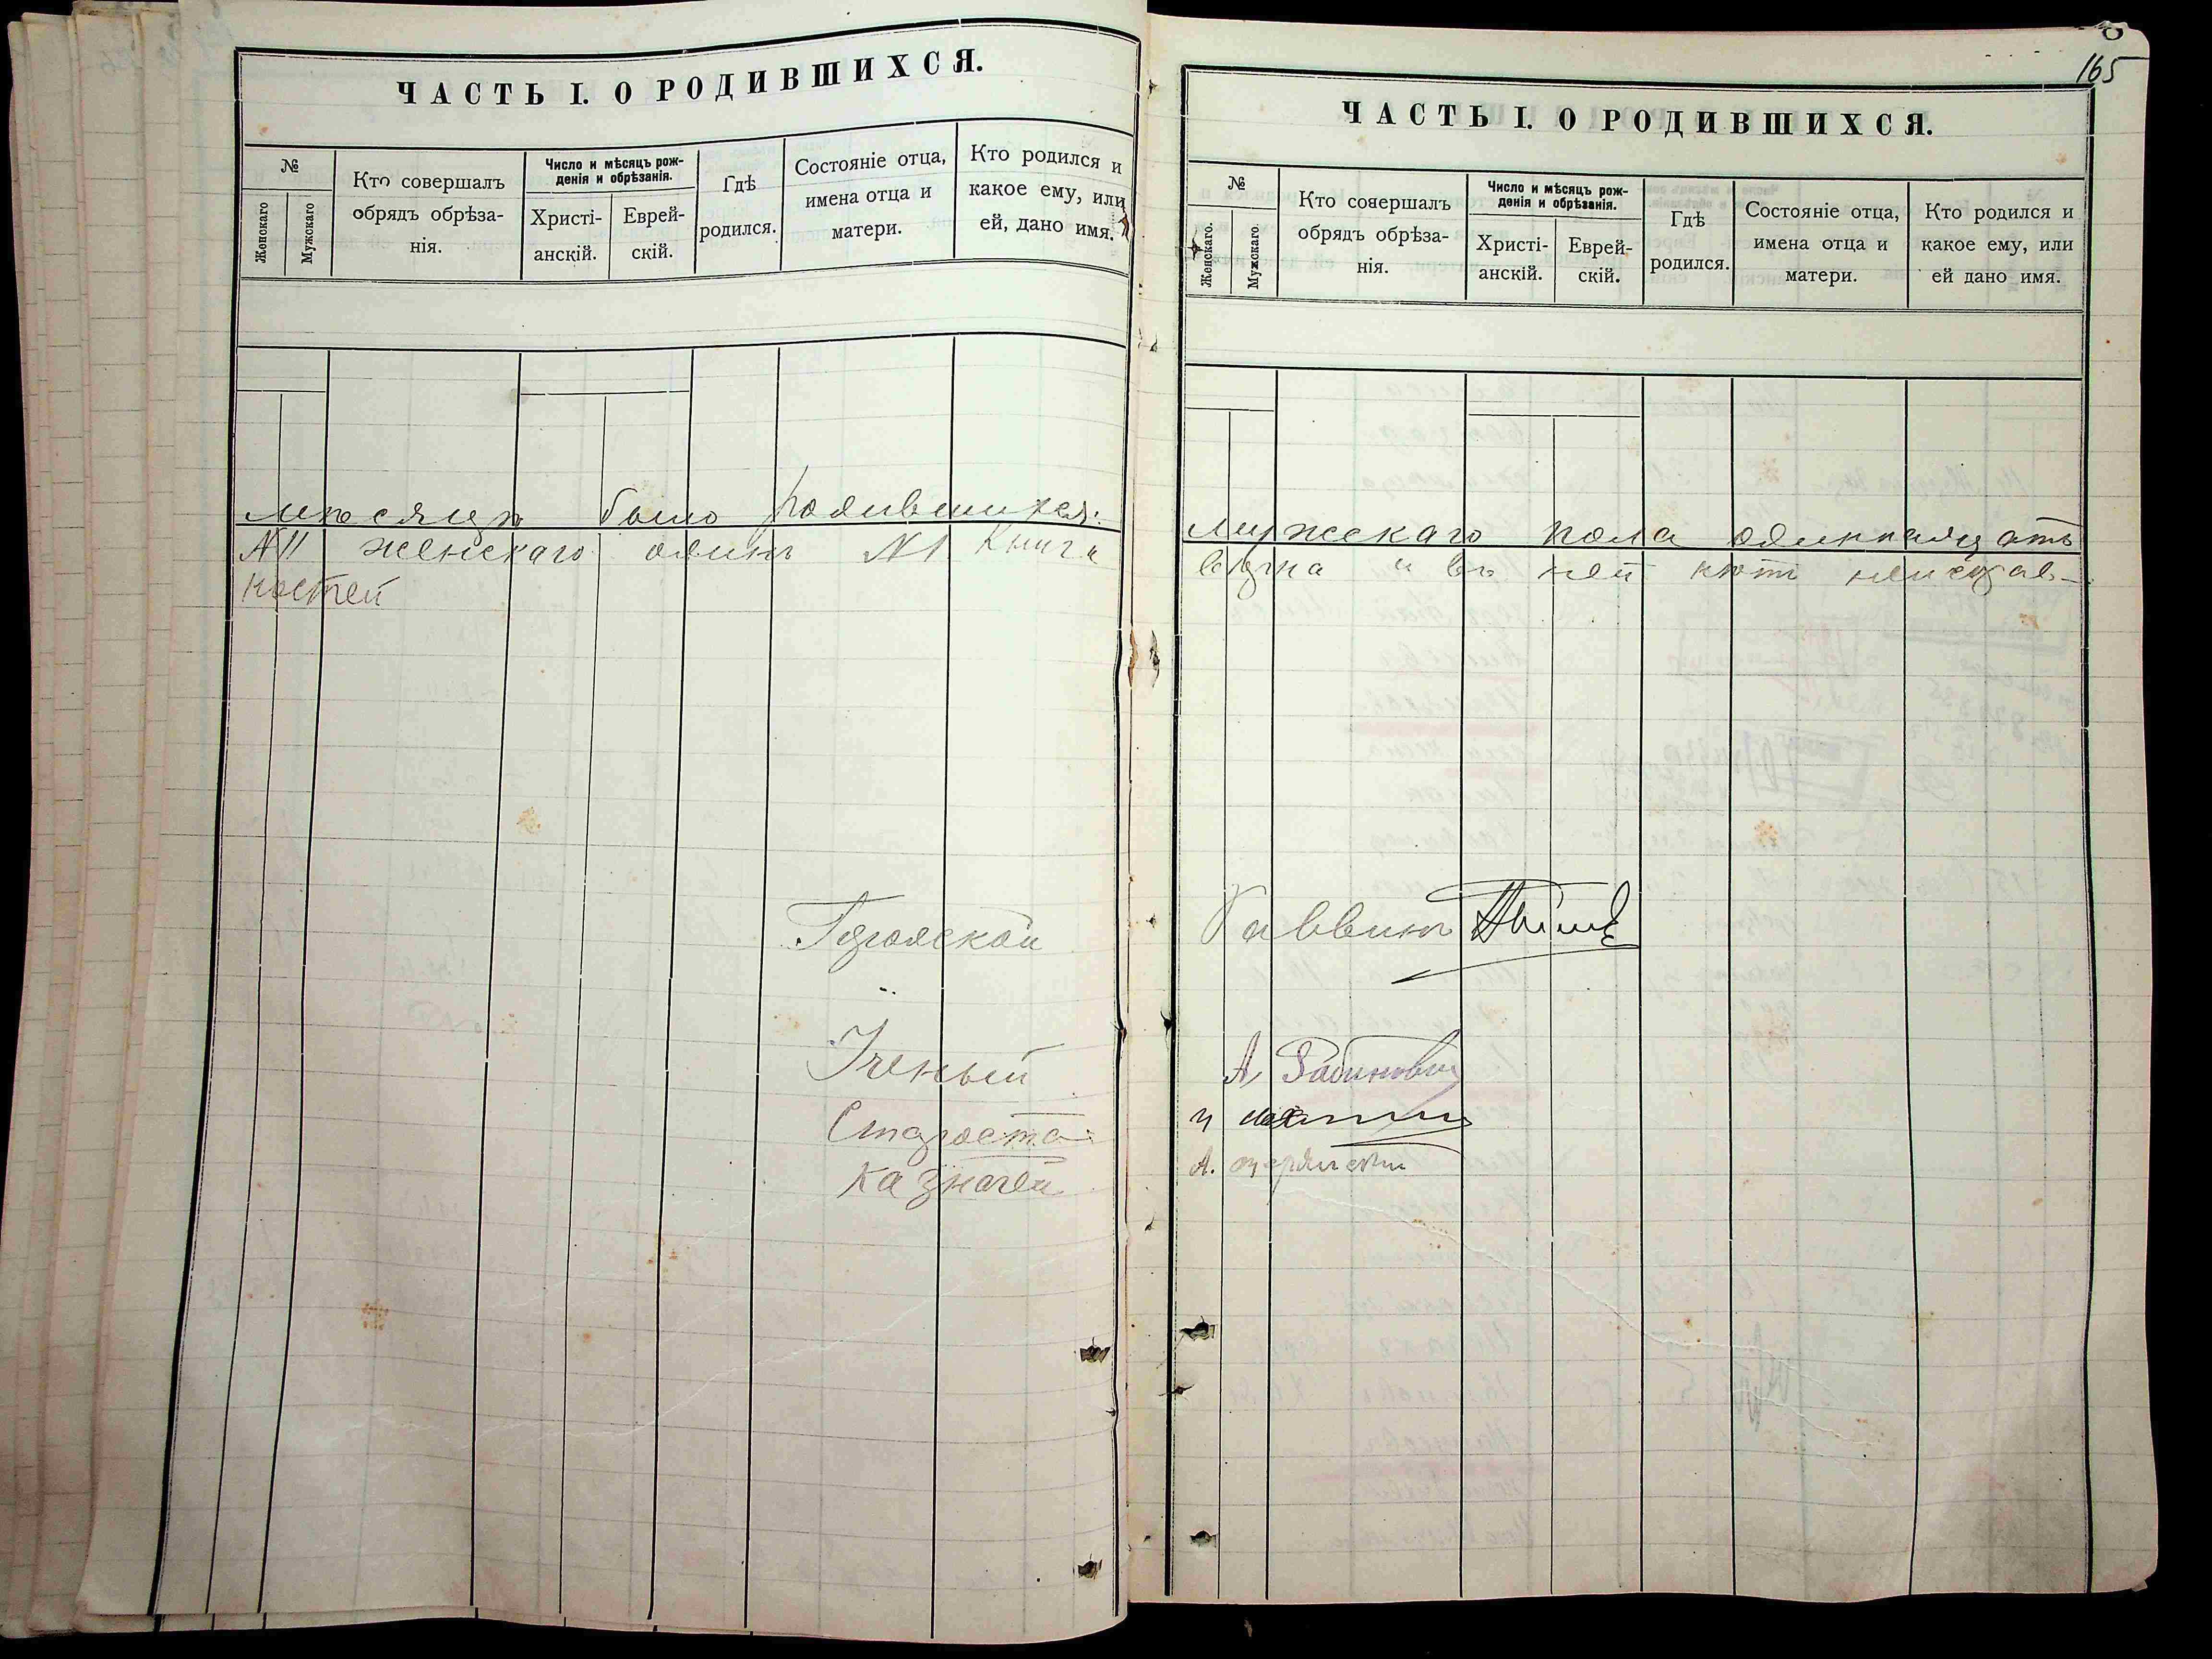 ЧАСТЬ I. О РОДИВШИХСЯ.
№
Женскаго
Мужскаго
Кто совершалъ
обрядъ обрѣза-
нія.
Число и мѣсяцъ рож-
денія и обрѣзанія.
Христі-
анскій.
Еврей-
скій.
Гдѣ
родился.
Состояніе отца,
имена отца и
матери.
Кто родился и
какое ему, или
ей, дано имя.
мѣсяцѣ было родившихся:
№11 женскаго одинъ №1 Книга
ностей
Городской
Ученый
Староста
Казначей
165
ЧАСТЬ I. О РОДИВШИХСЯ.
№
Женскаго.
Мужскаго.
Кто сояершалъ
обрядъ обрѣза-
нія.
Число и мѣсяцъ рож-
денія и обрѣзанія.
Христі-
анскій.
Еврей-
скій.
Гдѣ
родился.
Состояніе отца,
имена отца и
матери.
Кто родился и
какое ему, или
ей дано имя.
мужскаго пола одиннадцать
вѣрна и въ ней нѣтъ неисправ-
Раввинъ
А Рабинович
А.